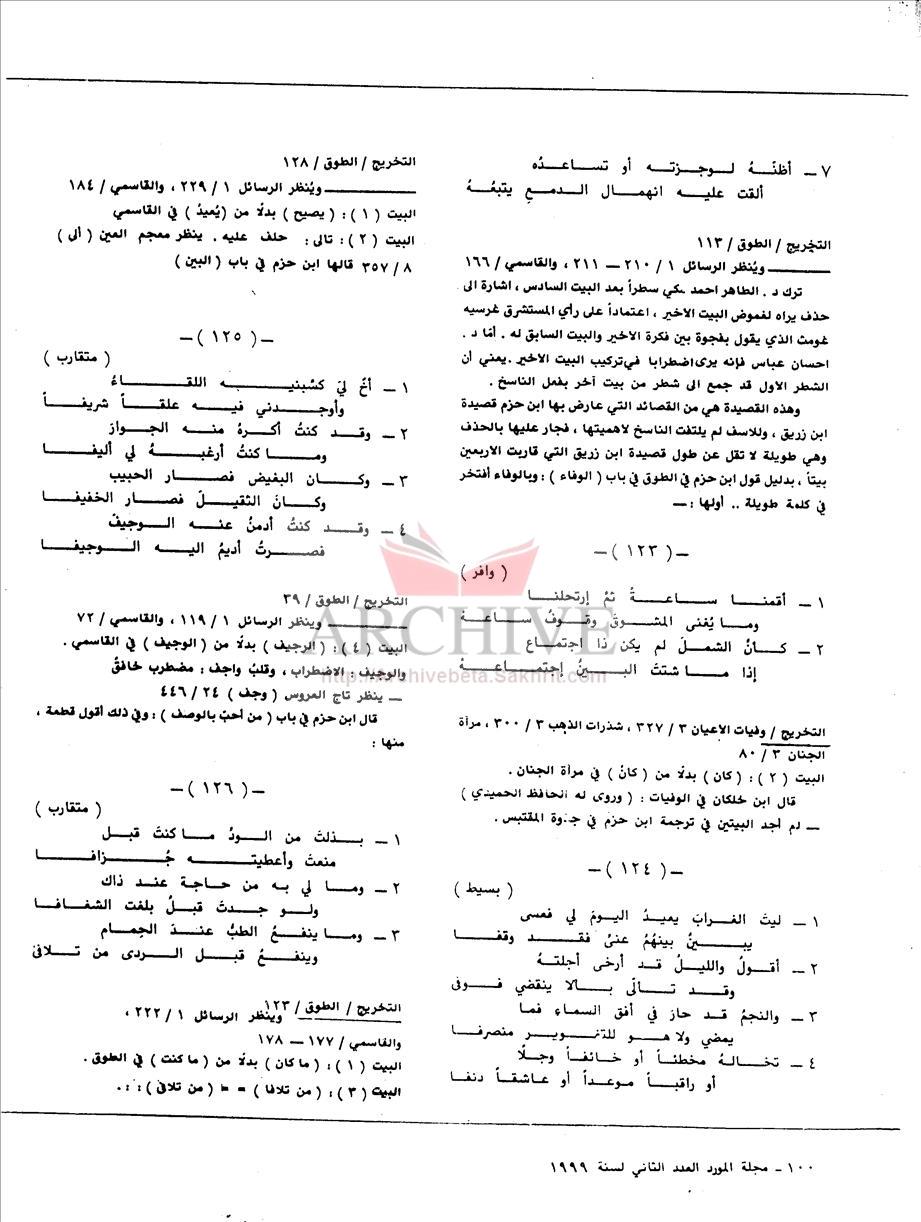 ٧ ــ أظنّهُ لوجزته أو تساعدُه
ألقت عليه انهمال الدمعِ يتبعُهُ
التخريج / الطوق / ١١٣
ويُنظر الرسائل ١ / ٢١٠ ــ ٢١١ ، والقاسمي / ١٦٦
ترك د . الطاهر احمد مكي سطراً بعد البيت السادس ، اشارة الى
حذف يراه لغموض البيت الاخير ، اعتماداً على رأي المستشرق غرسيه
غومث الذي يقول بفجوة بين فكرة الاخير والبيت السابق له . أمّا د .
احسان عباس فإنه يرى اضطرابا في تركيب البيت الاخير . يعني أن
الشطر الاول قد جمع الى شطر من بيت آخر بفعل الناسخ .
وهذه القصيدة هي من القصائد التي عارض بها ابن حزم قصيدة
ابن زريق ، وللاسف لم يلتفت الناسخ لاهميتها ، فجار عليها بالحذف
وهي طويلة لا تقل عن طول قصيدة ابن زريق التي قاربت الاربعين
بيتاً ، بدليل قول ابن حزم في الطوق في باب ( الوفاء ) : وبالوفاء أفتخر
في كلمة طويلة .. أولها : ــ
ــ ( ١٢٣ ) ــ
( وافر )
١ ــ أقمنا ساعةً ثمُ إرتحلنا
وما يُغنى المشوقَ وقوفُ ساعة
٢ ــ كأنُ الشملَ لم يكن ذا اجتماع
إذا ما شتتَ البينُ إجتماعهُ
التخريج / وفيات الاعيان ٣ / ٣٢٧ ، شذرات الذهب ٣ / ٣٠٠ ، مرآة
الجنان ٣ / ٨٠
البيت ( ٢ ) : ( كان ) بدلًا من ( كانُ ) في مرآة الجنان .
قال ابن خلكان في الوفيات : ( وروى له الحافظ الحميدي )
ــ لم أجد البيتين في ترجمة ابن حزم في جذوة المقتبس .
ــ ( ١٢٤ ) ــ
( بسيط )
١ ــ ليتَ الغرابَ يعيدُ اليومَ لي فعسى
يبينُ بينهُمُ عنيُ فقد وقفا
٢ ــ أقولُ والليلُ قد أرخى أجلتهُ
وقد تالّى بالا ينقضي فوفى
٣ ــ والنجمُ قد حار في أفق السماءِ فما
يمضي ولا هو للتغوير منصرفا
٤ ــ تخالهُ مخطئاً أو خائفاً وجلًا
أو راقباً موعداً أو عاشقاً دنفا
التخريج / الطوق / ١٢٨
ويُنظر الرسائل ١ / ٢٢٩ ، والقاسمي / ١٨٤
البيت ( ١ ) : ( يصيح ) بدلًا من ( يُعيدُ ) في القاسمي
البيت ( ٢ ) : تالى : حلف عليه . ينظر معجم العين ( ألى )
٨ / ٣٥٧ قالها ابن حزم في باب ( البين )
ــ ( ١٢٥ ) ــ
( متقارب )
١ ــ أخُ ليَ كسّبنيه اللقاءُ
وأوجدني فيه علقاً شريفاً
٢ ــ وقد كنتُ أكرهُ منه الجوازَ
وما كنتُ أرغبهُ لي أليفا
٣ ــ وكان البغيض فصار الحبيب
وكانَ الثقيلَ فصار الخفيفا
٤ ــ وقد كنتُ أدمنُ عنه الوجيفَ
فصرتُ أديمُ اليه الوجيفا
التخريج / الطوق / ٣٩
وينظر الرسائل ١ / ١١٩ ، والقاسمي / ٧٢
البيت ( ٤ ) : ( الرجيف ) بدلًا من ( الوجيف ) في القاسمي .
والوجيف : الاضطراب ، وقلبُ واجف : مضطرب خافقُ
ــ ينظر تاج العروس ( وجف ) ٢٤ / ٤٤٦
قال ابن حزم في باب ( من أحبّ بالوصف ) : وفي ذلك أقول قطعة ،
منها :
ــ ( ١٢٦ ) ــ
( متقارب )
١ ــ بذلتَ من الودُ ما كنتَ قبل
منعتَ وأعطيته جُزافا
٢ ــ وما لي به من حاجة عند ذاك
ولو جدتَ قبلُ بلغت الشغافا
٣ ــ وما ينفعُ الطبُ عندَ الحِمام
وينفعُ قبل الردى من تلافى
التخريج / الطوق / ١٢٣
وينظر الرسائل ١ / ٢٢٢ ،
والقاسمي / ١٧٧ ــ ١٧٨
البيت ( ١ ) : ( ما كان ) بدلًا من ( ما كنت ) في الطوق .
البيت ( ٣ ) : ( من تلافا ) = = ( من تلافى ) : : .
١٠٠ ـ مجلة المورد العدد الثاني لسنة ١٩٩٩
ARCHIVE
http://Archivebeta.Sakhrit.com